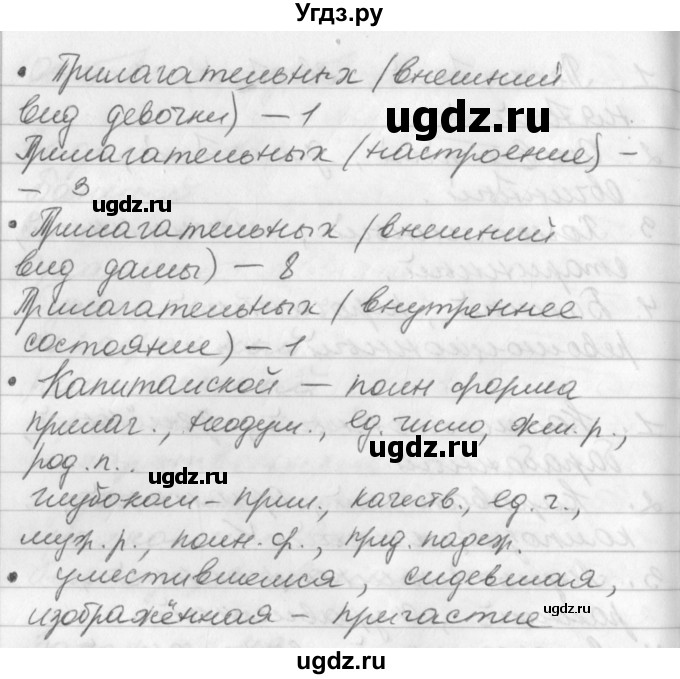 Угдз.ру
• Прилагательных (внешний
вид девочки) – 1
Прилагательных (настроение) –
– 3
• Прилагательных (внешний
вид дамы) – 8
Прилагательных (внутреннее
состояние) – 1
• Капитанской – полн форма
прилаг., неодуш., ед. число, жен. р.,
род. п..
глубоком – прил., качеств., ед. ч.,
муж. р., полн. ф., пред. падеж.
• уместившемся, сидевшая,
изображённая – причастие
ugdz.ru
ugdz.ru
ugdz.ru
ugdz.ru
ugdz.ru
ugdz.ru